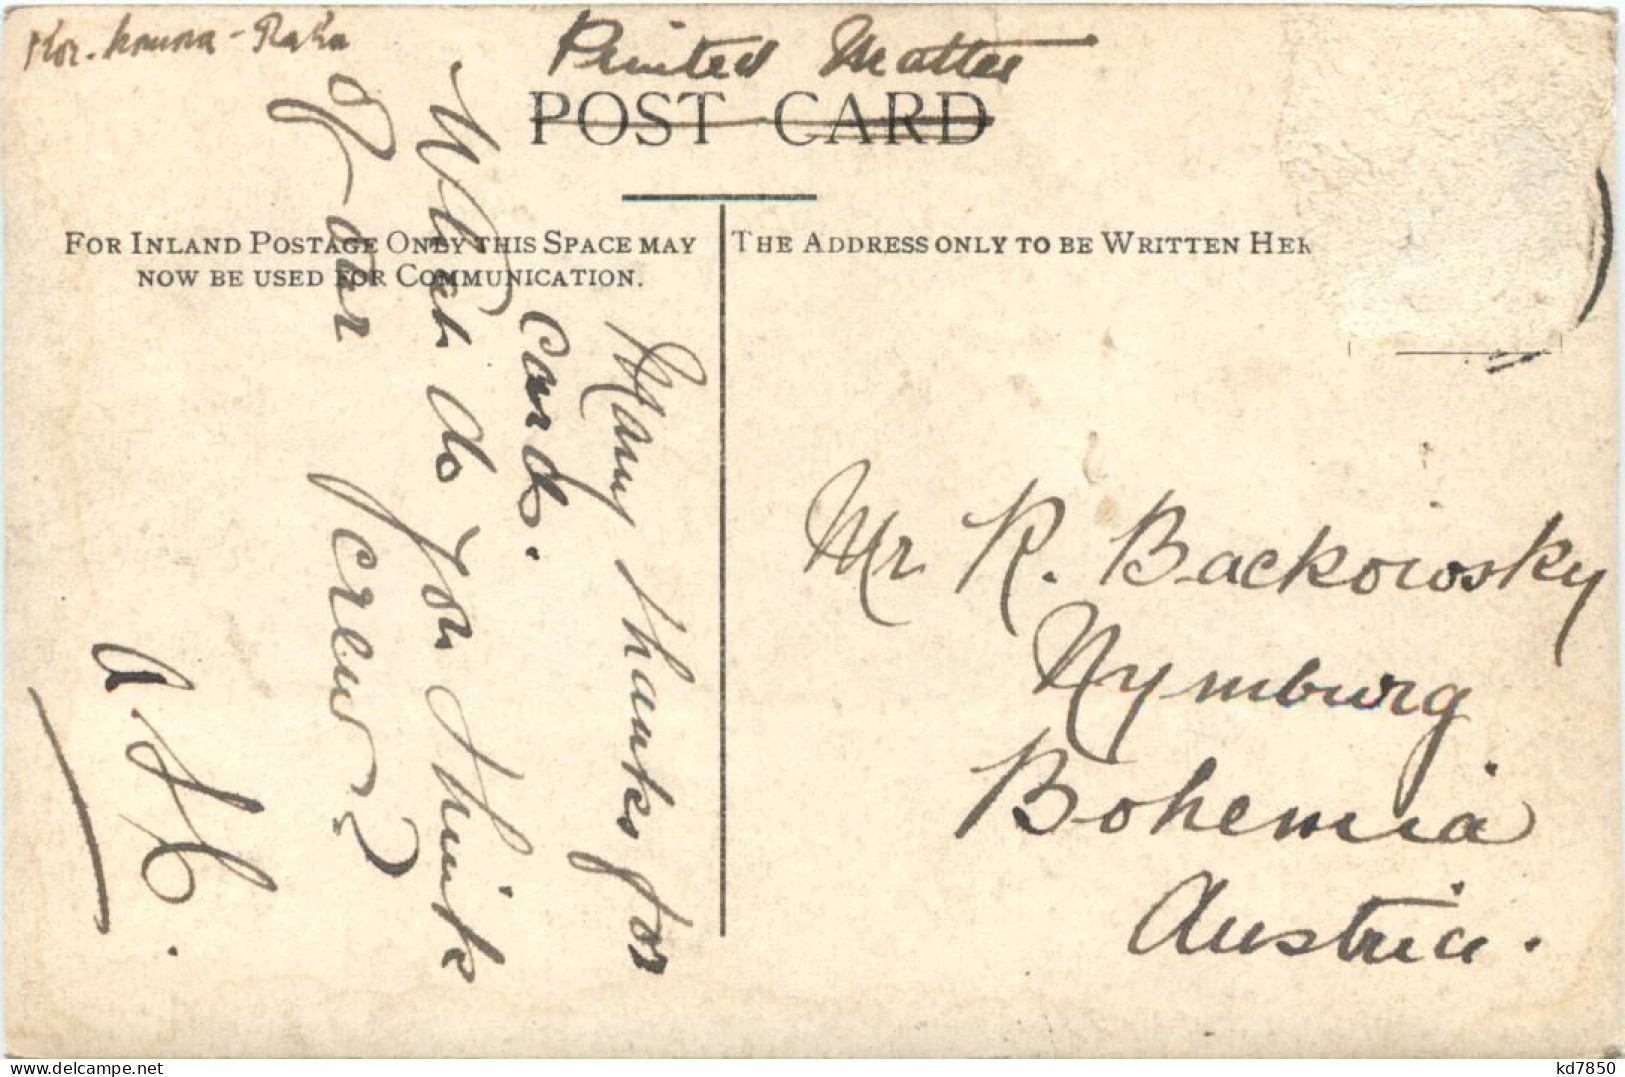 Printed Matter
POST CARD
FOR INLAND POSTAGE ONLY THIS SPACE MAY
NOW BE USED FOR COMMUNICATION.
THE ADDRESS ONLY TO BE WRITTEN HER
Many thanks for
card.
What do you think
of our
crew?
Mr R. Backowsky
Nymburg
Bohemia
Austria.
kd7850
delcampe.net